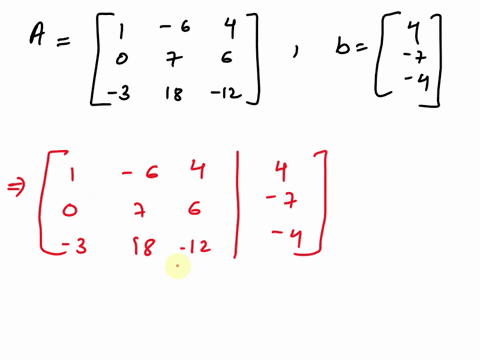 A = [ 1 -6 4 , b = [ 4
0 7 6 -7
-3 18 -12 ] -4 ]
⇒ [ 1 -6 4 | 4
0 7 6 | -7
-3 18 -12 | -4 ]